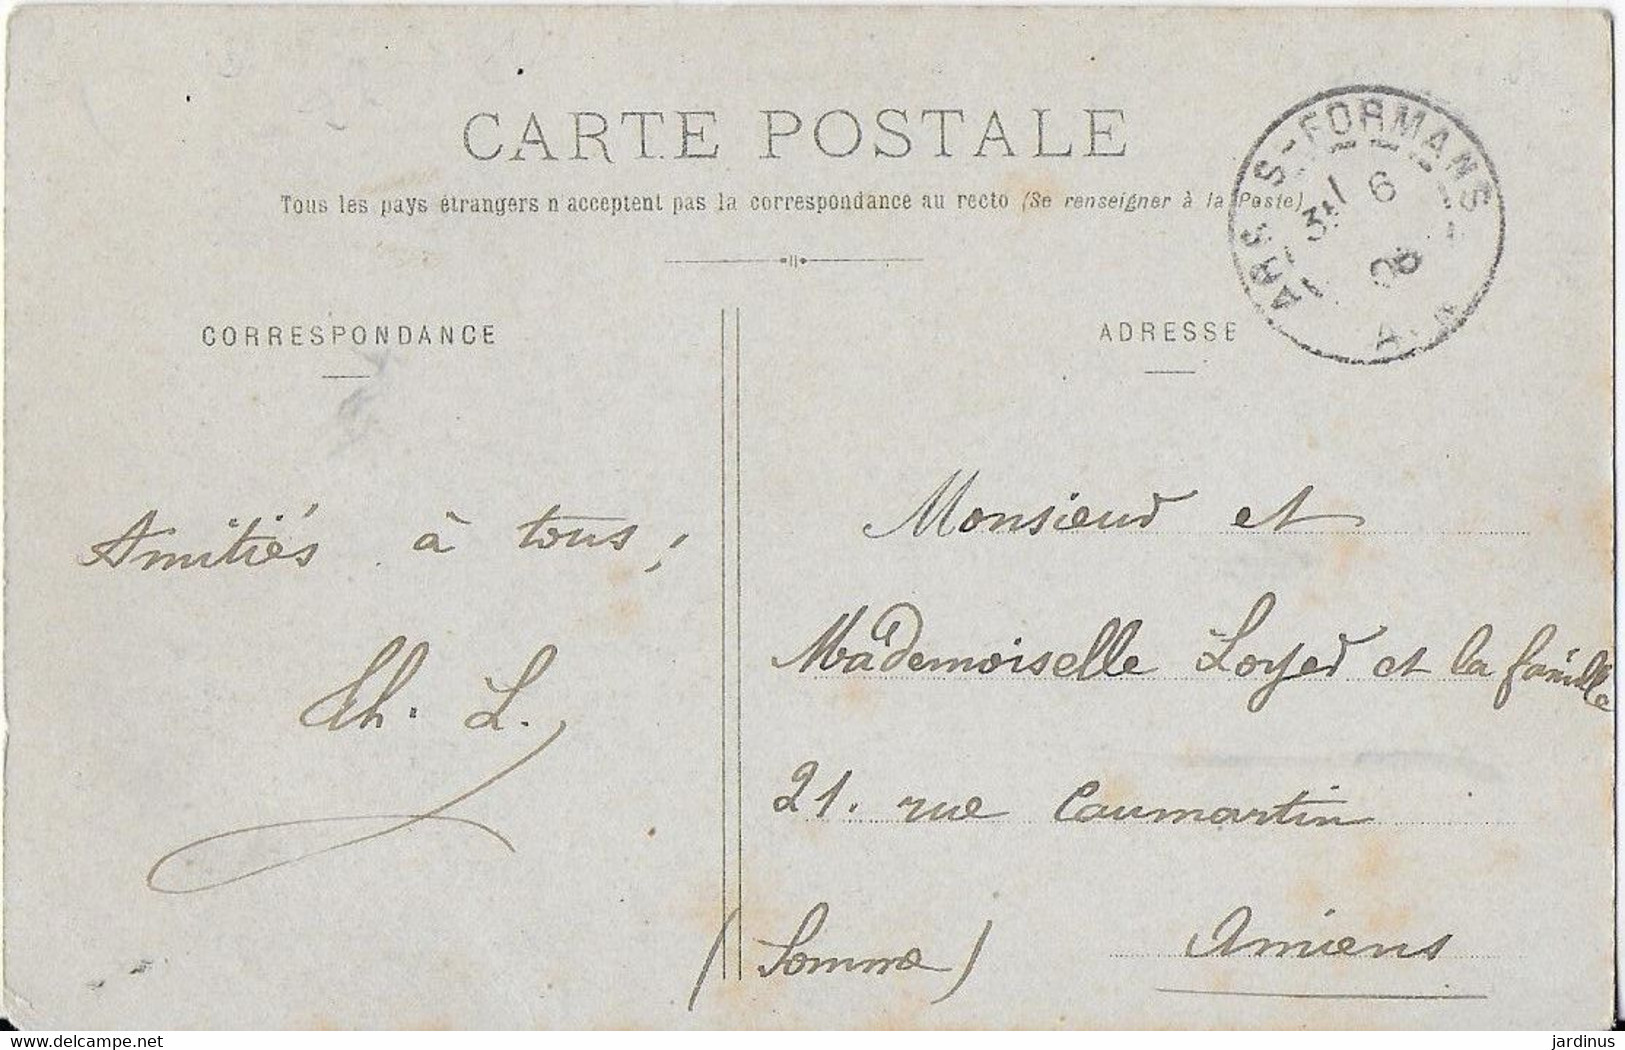 CARTE POSTALE
Tous les pays étrangers n'acceptent pas la correspondance au recto (Se renseigner à la Poste)
ARS S-FORMANS
6
08
CORRESPONDANCE
ADRESSE
Amitiés à tous;
Ch. L.
Monsieur et
Mademoiselle Loyer et la famille
21. rue Caumartin
(Somme) Amiens
www.delcampe.net
jardinus